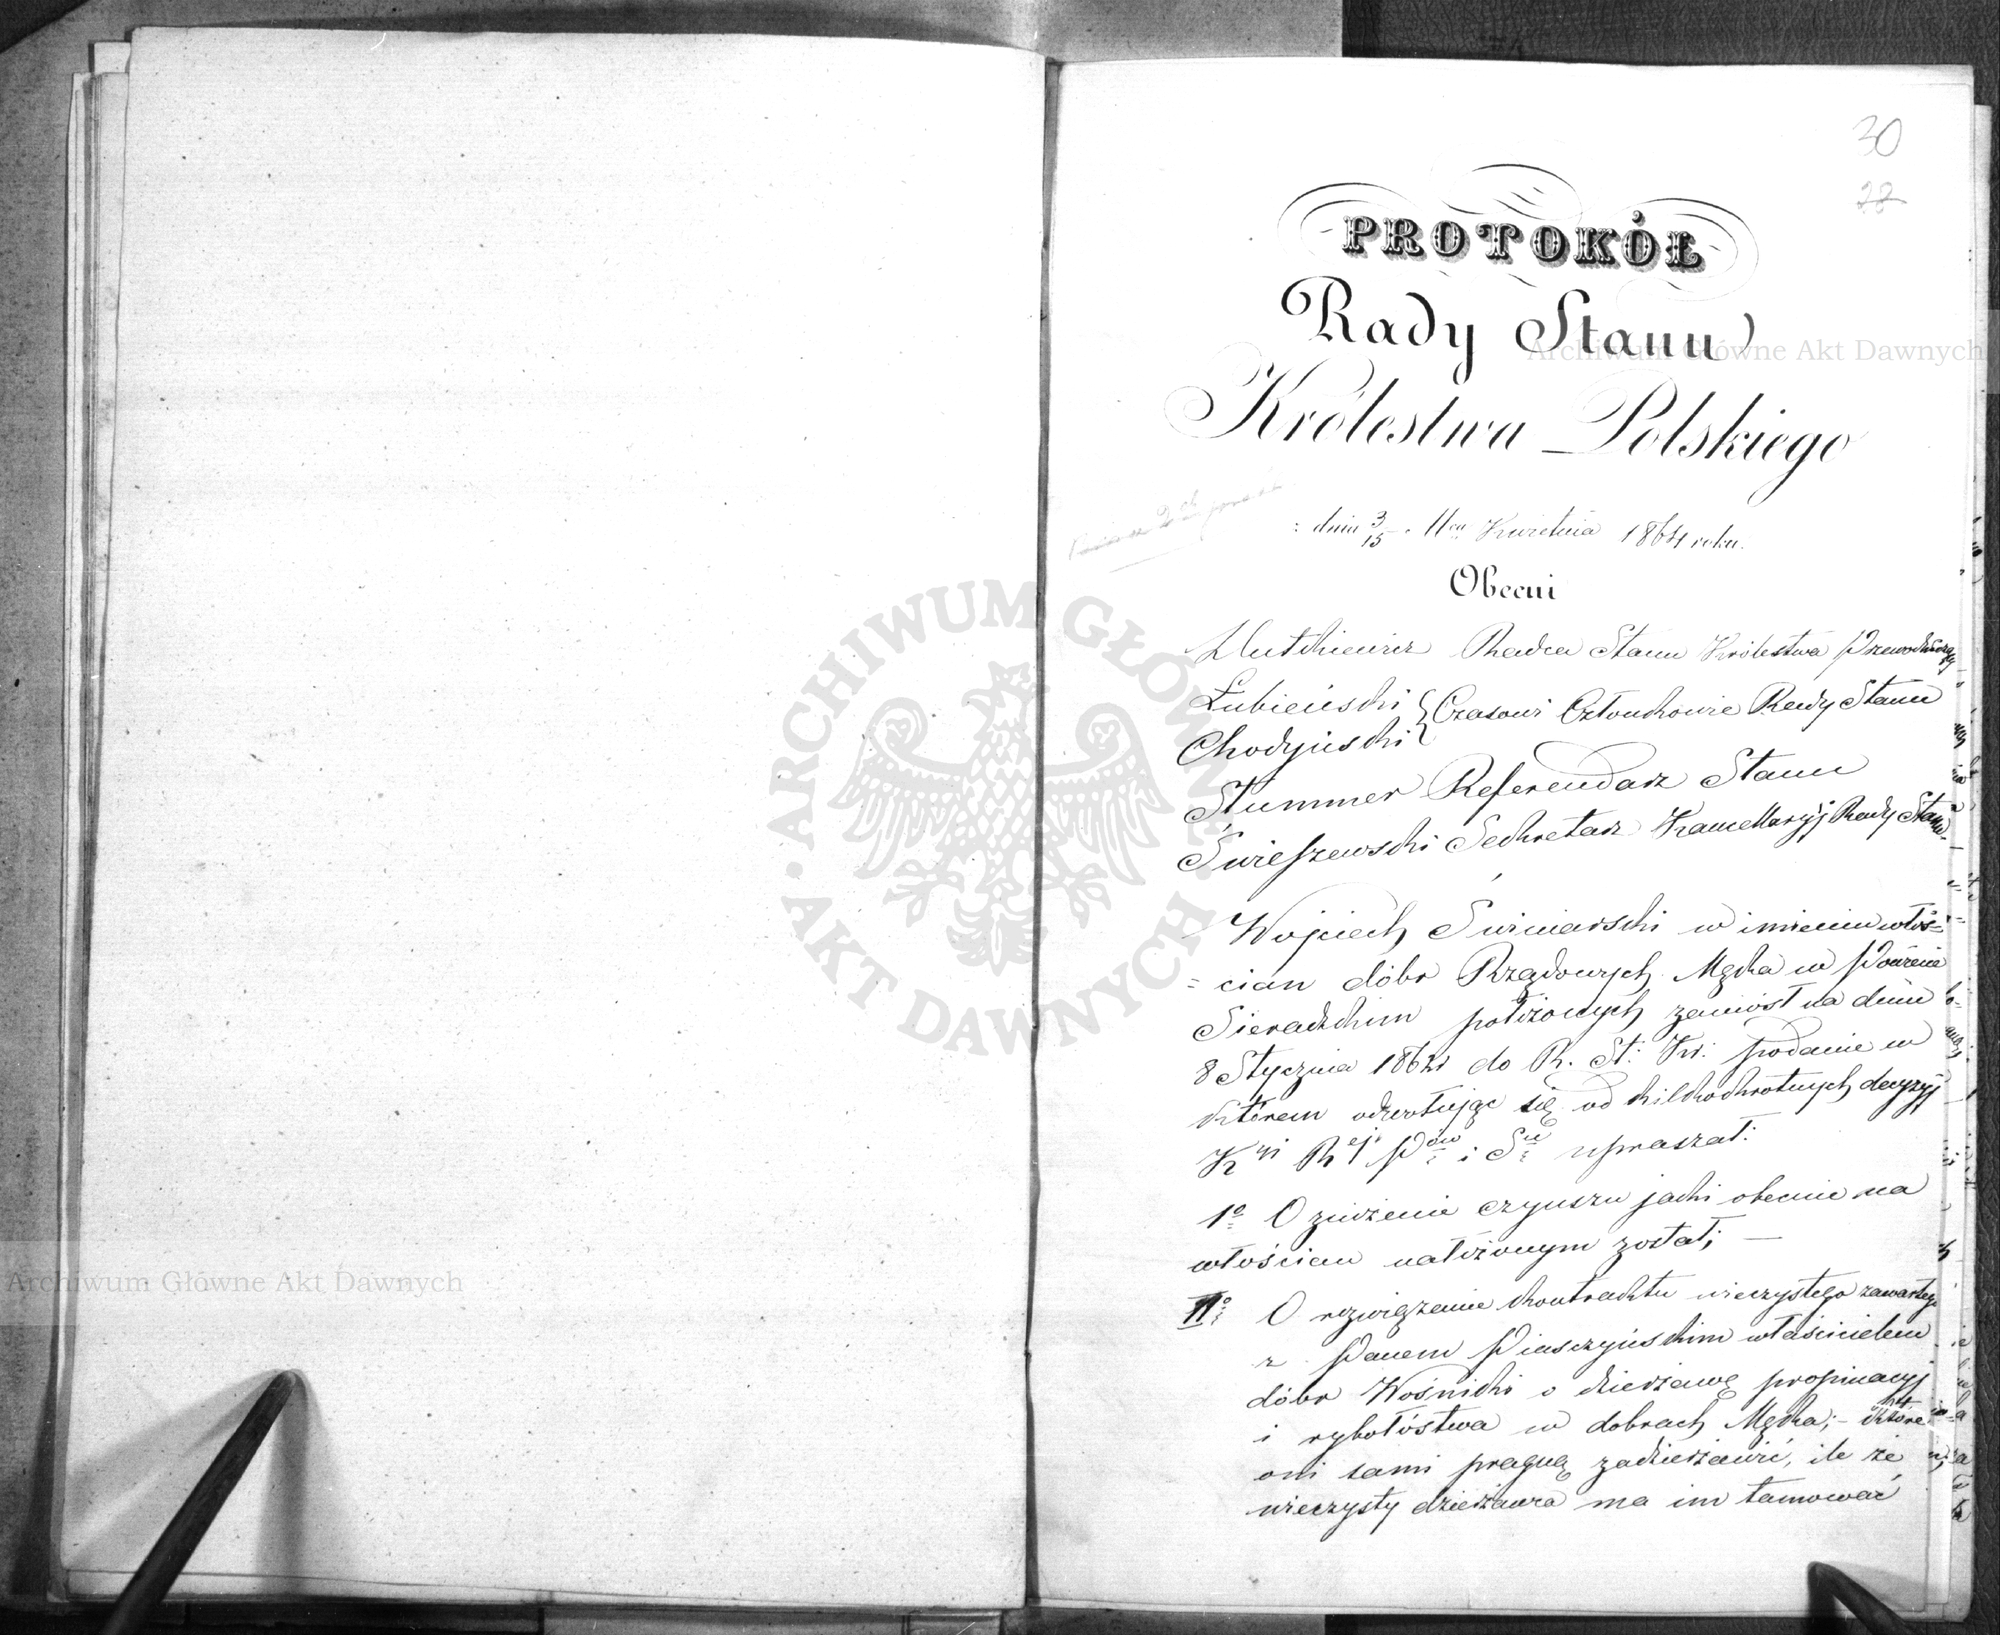 30
28
PROTOKÓŁ
Rady Stanu
Królestwa Polskiego
dnia 3/15 Kwietnia 1864 roku.
Obecni
Radca Stanu Królestwa Przewodniczący
Łubieński } Czasowi Członkowie Rady Stanu
Chodyński
Stummer Referendarz Stanu
Świeszewski Sekretarz Kancellaryj Rady Stanu
Wojciech Świniarski w imieniu włoś=
=cian dóbr Rządowych Męka w Powiecie
Sieradzkim położonych zaniósł na dniu
8 Stycznia do R. St: Kr: podanie w
którem odwołując się od kilkokrotnych decyzyj
K yi R ej P ów i S u upraszał:
1º O zniżenie czynszu jaki obecnie na
włościan nałożonym został; —
IIº O rozwiązanie kontraktu wieczystego zawartego
z Panem Piaszczyńskim właścicielem
dóbr Woźniki o dzierżawę propinacyj
i rybołóstwa w dobrach Męka; – które
oni sami pragną zadzierżawić, ile że
wieczysty dzierżawca ma im tamować
Archiwum Główne Akt Dawnych
Archiwum Główne Akt Dawnych
ARCHIWUM GŁÓWNE · AKT DAWNYCH ·